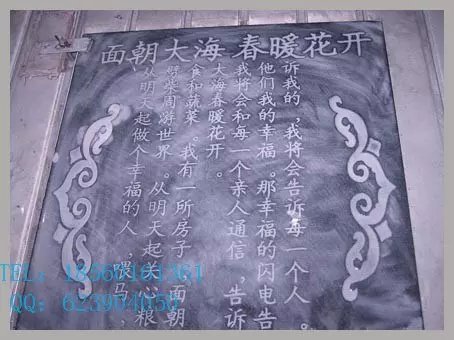 面朝大海春暖花开
从明天起做个幸福的人，喂马，
劈柴周游世界。从明天起关心粮
食和蔬菜。我有一所房子，面朝
大海春暖花开。
我将会和每一个亲人通信，告诉
他们我的幸福。那幸福的闪电告
诉我的，我将会告诉每一个人。
TEL:
QQ: